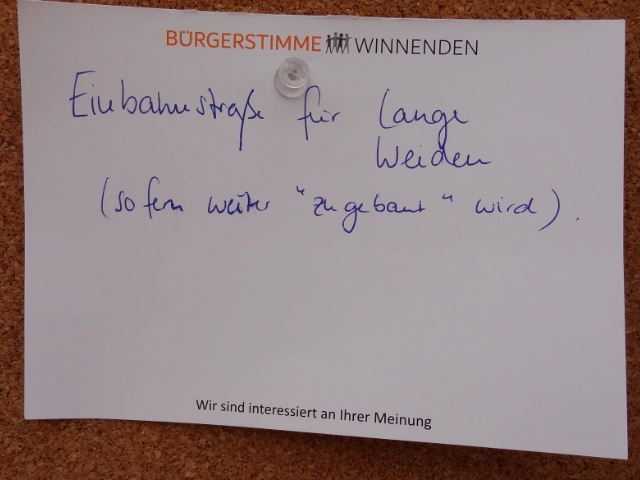 BÜRGERSTIMME WINNENDEN
Einbahnstraße für Lange
Weiden
(sofern weiter "zugebaut" wird).
Wir sind interessiert an Ihrer Meinung